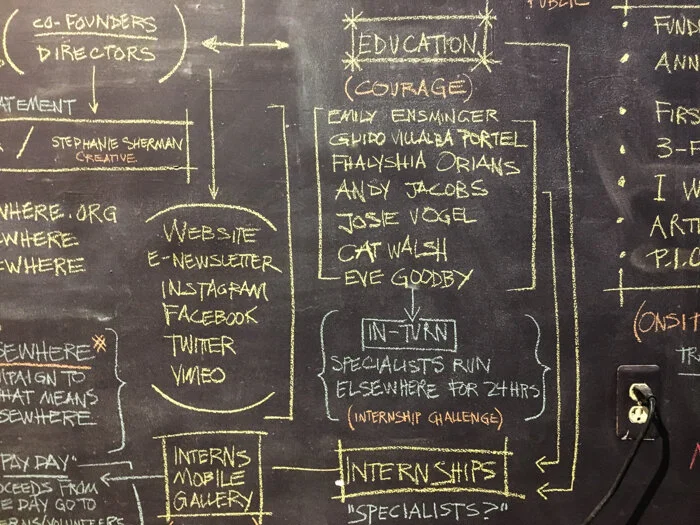 CO-FOUNDERS
DIRECTORS
STEPHANIE SHERMAN
CREATIVE
WEBSITE
E-NEWSLETTER
INSTAGRAM
FACEBOOK
TWITTER
VIMEO
INTERNS
MOBILE
GALLERY
EDUCATION
(COURAGE)
EMILY ENSMINGER
GUIDO VILLALBA PORTEL
FHALYSHIA ORIANS
ANDY JACOBS
JOSIE VOGEL
CAT WALSH
EVE GOODBY
IN-TURN
SPECIALISTS RUN
ELSEWHERE FOR 24HRS
(INTERNSHIP CHALLENGE)
INTERNSHIPS
"SPECIALISTS?"
PUBLIC
FUND
ANN
FIRS
3-F
I W
ART
P.I.O
(ONSIT
TR
ATEMENT
WHERE.ORG
EWHERE
EWHERE
SEWHERE*
PAIGN TO
HAT MEANS
SEWHERE
PAY DAY"
OCEEDS FROM
E DAY GO TO
ERNS/VOLUNTEERS